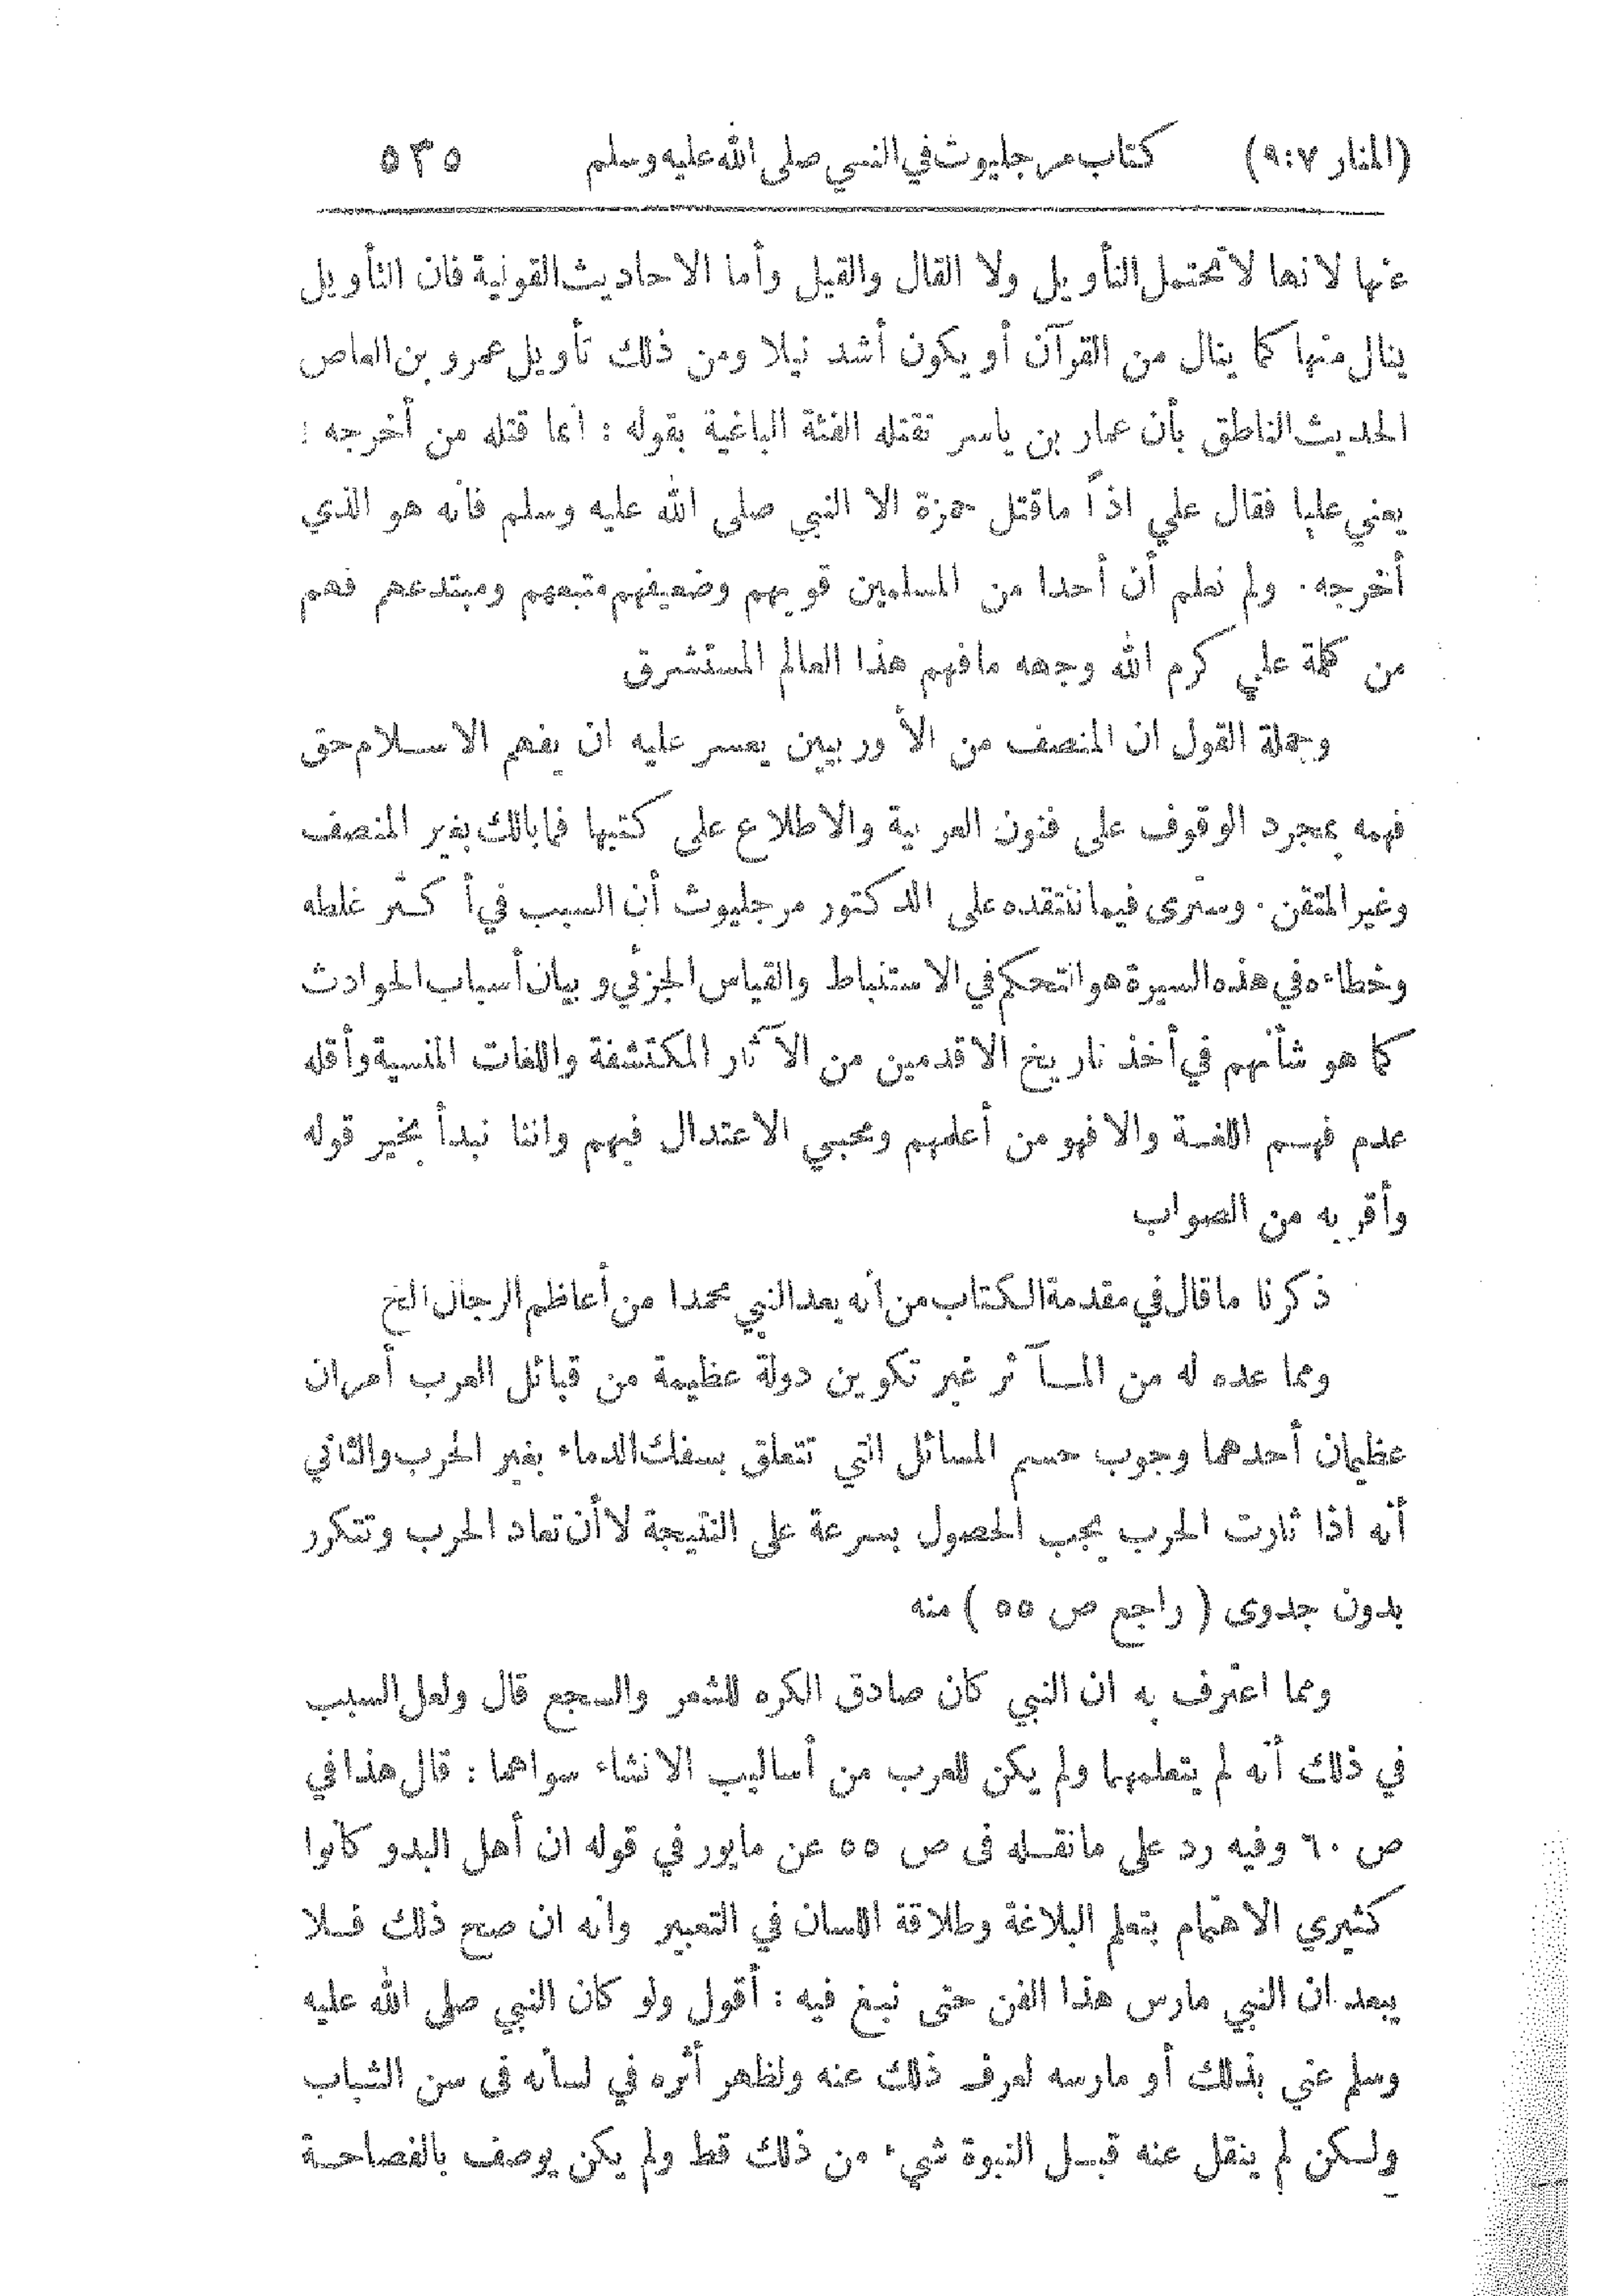 (المنار ٩:٧) كتاب مرجليوث في النبي صلى الله عليه وسلم ٥٣٥
عنها لانها لا تحتمل التأويل ولا القال والقيل وأما الاحاديث القولية فان التأويل
ينال منها كما ينال من القرآن أو يكون أشد نيلا ومن ذلك تأويل عمرو بن العاص
الحديث الناطق بأن عمار بن ياسر تقتله الفئة الباغية بقوله : انما قتله من أخرجه :
يعني عليا فقال علي اذاً ماقتل حمزة الا النبي صلى الله عليه وسلم فانه هو الذي
أخرجه . ولم نعلم أن أحدا من المسلمين قويهم وضعيفهم متبعهم ومبتدعهم فهم
من كلمة علي كرم الله وجهه مافهم هذا العالم المستشرق
وجملة القول ان المنصف من الأوربيين يعسر عليه ان يفهم الاسلام حق
فهمه بمجرد الوقوف على فنون العربية والاطلاع على كتبها فما بالك بغير المنصف
وغير المتقن . وسترى فيما ننتقده على الدكتور مرجليوث أن السبب في أكثر غلطه
وخطاءه في هذه السيرة هو التحكم في الاستنباط والقياس الجزئي وبيان أسباب الحوادث
كما هو شأنهم في أخذ تاريخ الاقدمين من الآثار المكتشفة واللغات المنسية وأقله
عدم فهم اللغة والا فهو من أعلمهم ومحبي الاعتدال فيهم واننا نبدأ بخير قوله
وأقربه من الصواب
ذكرنا ماقال في مقدمة الكتاب من أنه يعد النبي محمدا من أعاظم الرجال الخ
ومما عده له من المآثر غير تكوين دولة عظيمة من قبائل العرب أمران
عظيمان أحدهما وجوب حسم المسائل التي تتعلق بسفك الدماء بغير الحرب والثاني
أنه اذا ثارت الحرب يجب الحصول بسرعة على النتيجة لا أن تعاد الحرب وتتكرر
بدون جدوى ( راجع ص ٥٥ ) منه
ومما اعترف به ان النبي كان صادق الكره للشعر والسجع قال ولعل السبب
في ذلك أنه لم يتعلمهما ولم يكن للعرب من أساليب الانشاء سواهما : قال هذا في
ص ٦٠ وفيه رد على مانقله فى ص ٥٥ عن مايور في قوله ان أهل البدو كانوا
كثيري الاهتمام بتعلم البلاغة وطلاقة اللسان في التعبير وانه ان صح ذلك فلا
يبعد ان النبي مارس هذا الفن حتى نبغ فيه : أقول ولو كان النبي صلى الله عليه
وسلم عني بذلك أو مارسه لعرف ذلك عنه ولظهر أثره في لسانه فى سن الشباب
ولكن لم ينقل عنه قبل النبوة شيء من ذلك قط ولم يكن يوصف بالفصاحة